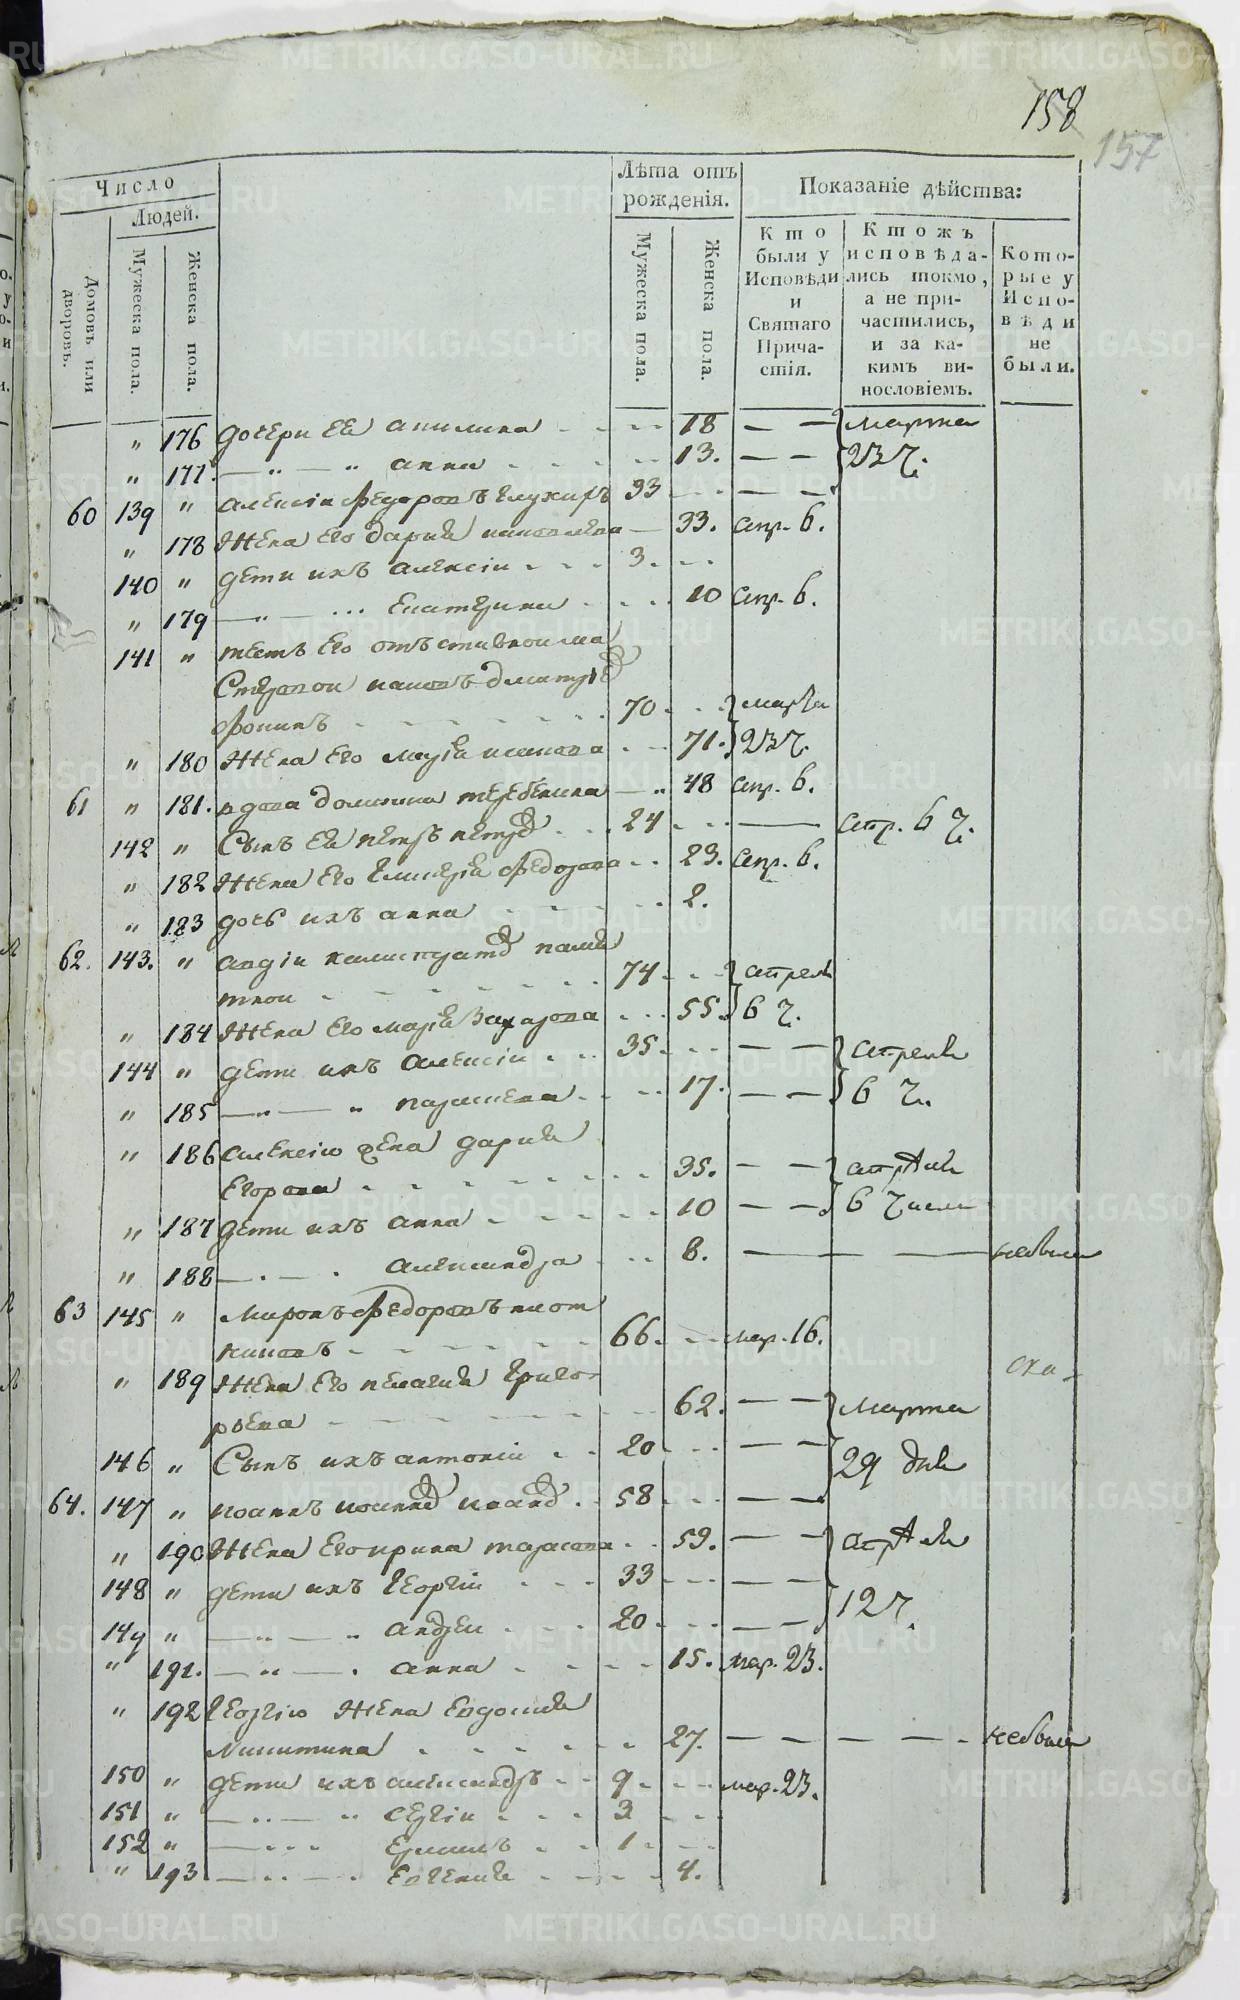 158
157
Число
Людей.
Домовъ или дворовъ.
Мужеска пола.
Женска пола.
Лѣта отъ рожденія.
Мужеска пола.
Женска пола.
Показаніе дѣйства:
Кто были у Исповѣди и Святаго Причастія.
Ктожъ исповѣдались токмо, а не причастились, и за какимъ винословіемъ.
Которые у Исповѣди не были.
" 176 дочери ея акилина 18 — — марта
" 177. — " — " анна 13. — — 23 ч.
60 139 " алексіи Федоровъ глухиръ 33 — —
" 178 Жена Его дария 33. апр. 6.
140 " дети ихъ алексіи 3.
" 179 — " — Екатерина 10 апр. 6.
141 " тесть Его отъставнои ма
Стеровои дмитріевъ
Фокинъ 70 марта
" 180 Жена Его марія иванова 71. 23 ч.
61 " 181. вдова домникиа теребенина 48 апр. 6.
142 " Сынъ Ея петръ петровъ 24 — апр. 6 ч.
" 182 Жена Его гликерія Федорова 23. апр. 6.
" 183 дочь ихъ анна 2.
62. 143. " авдіи калистратовъ
74 апреля
" 184 Жена Его марія Захарова 55. 6 ч.
144 " дети ихъ алексіи 35 — — апреля
" 185 — " — " параскева 17. — — 6 ч.
" 186 алексію жена дария
Егорова 35. — — апреля
" 187 дети ихъ анна 10 — — 6 числа
" 188 — . — . александра 8. — — — небыла
63 145 " Миронъ Федоровъ плот
никовъ 66. мар. 16.
" 189 Жена Его пелагия Григо
рьева 62. — — марта
146 " Сынъ ихъ антоніи 20 — — 29 дня
64. 147 " иоаннъ иоанновъ 58 — —
" 190 Жена Его ирина тарасова 59. — — апреля
148 " дети ихъ георгіи 33 — —
149 " — " — " андреи 20 — — 12 ч.
" 191. — " — . анна 15. мар. 23.
" 192 георгію Жена Евдокия
Никитина 27. — — — — небыла
150 " дети ихъ александръ 9 мар. 23.
151 " — " — " сергіи 3
152 " — 1
" 193 — Евгения 4.